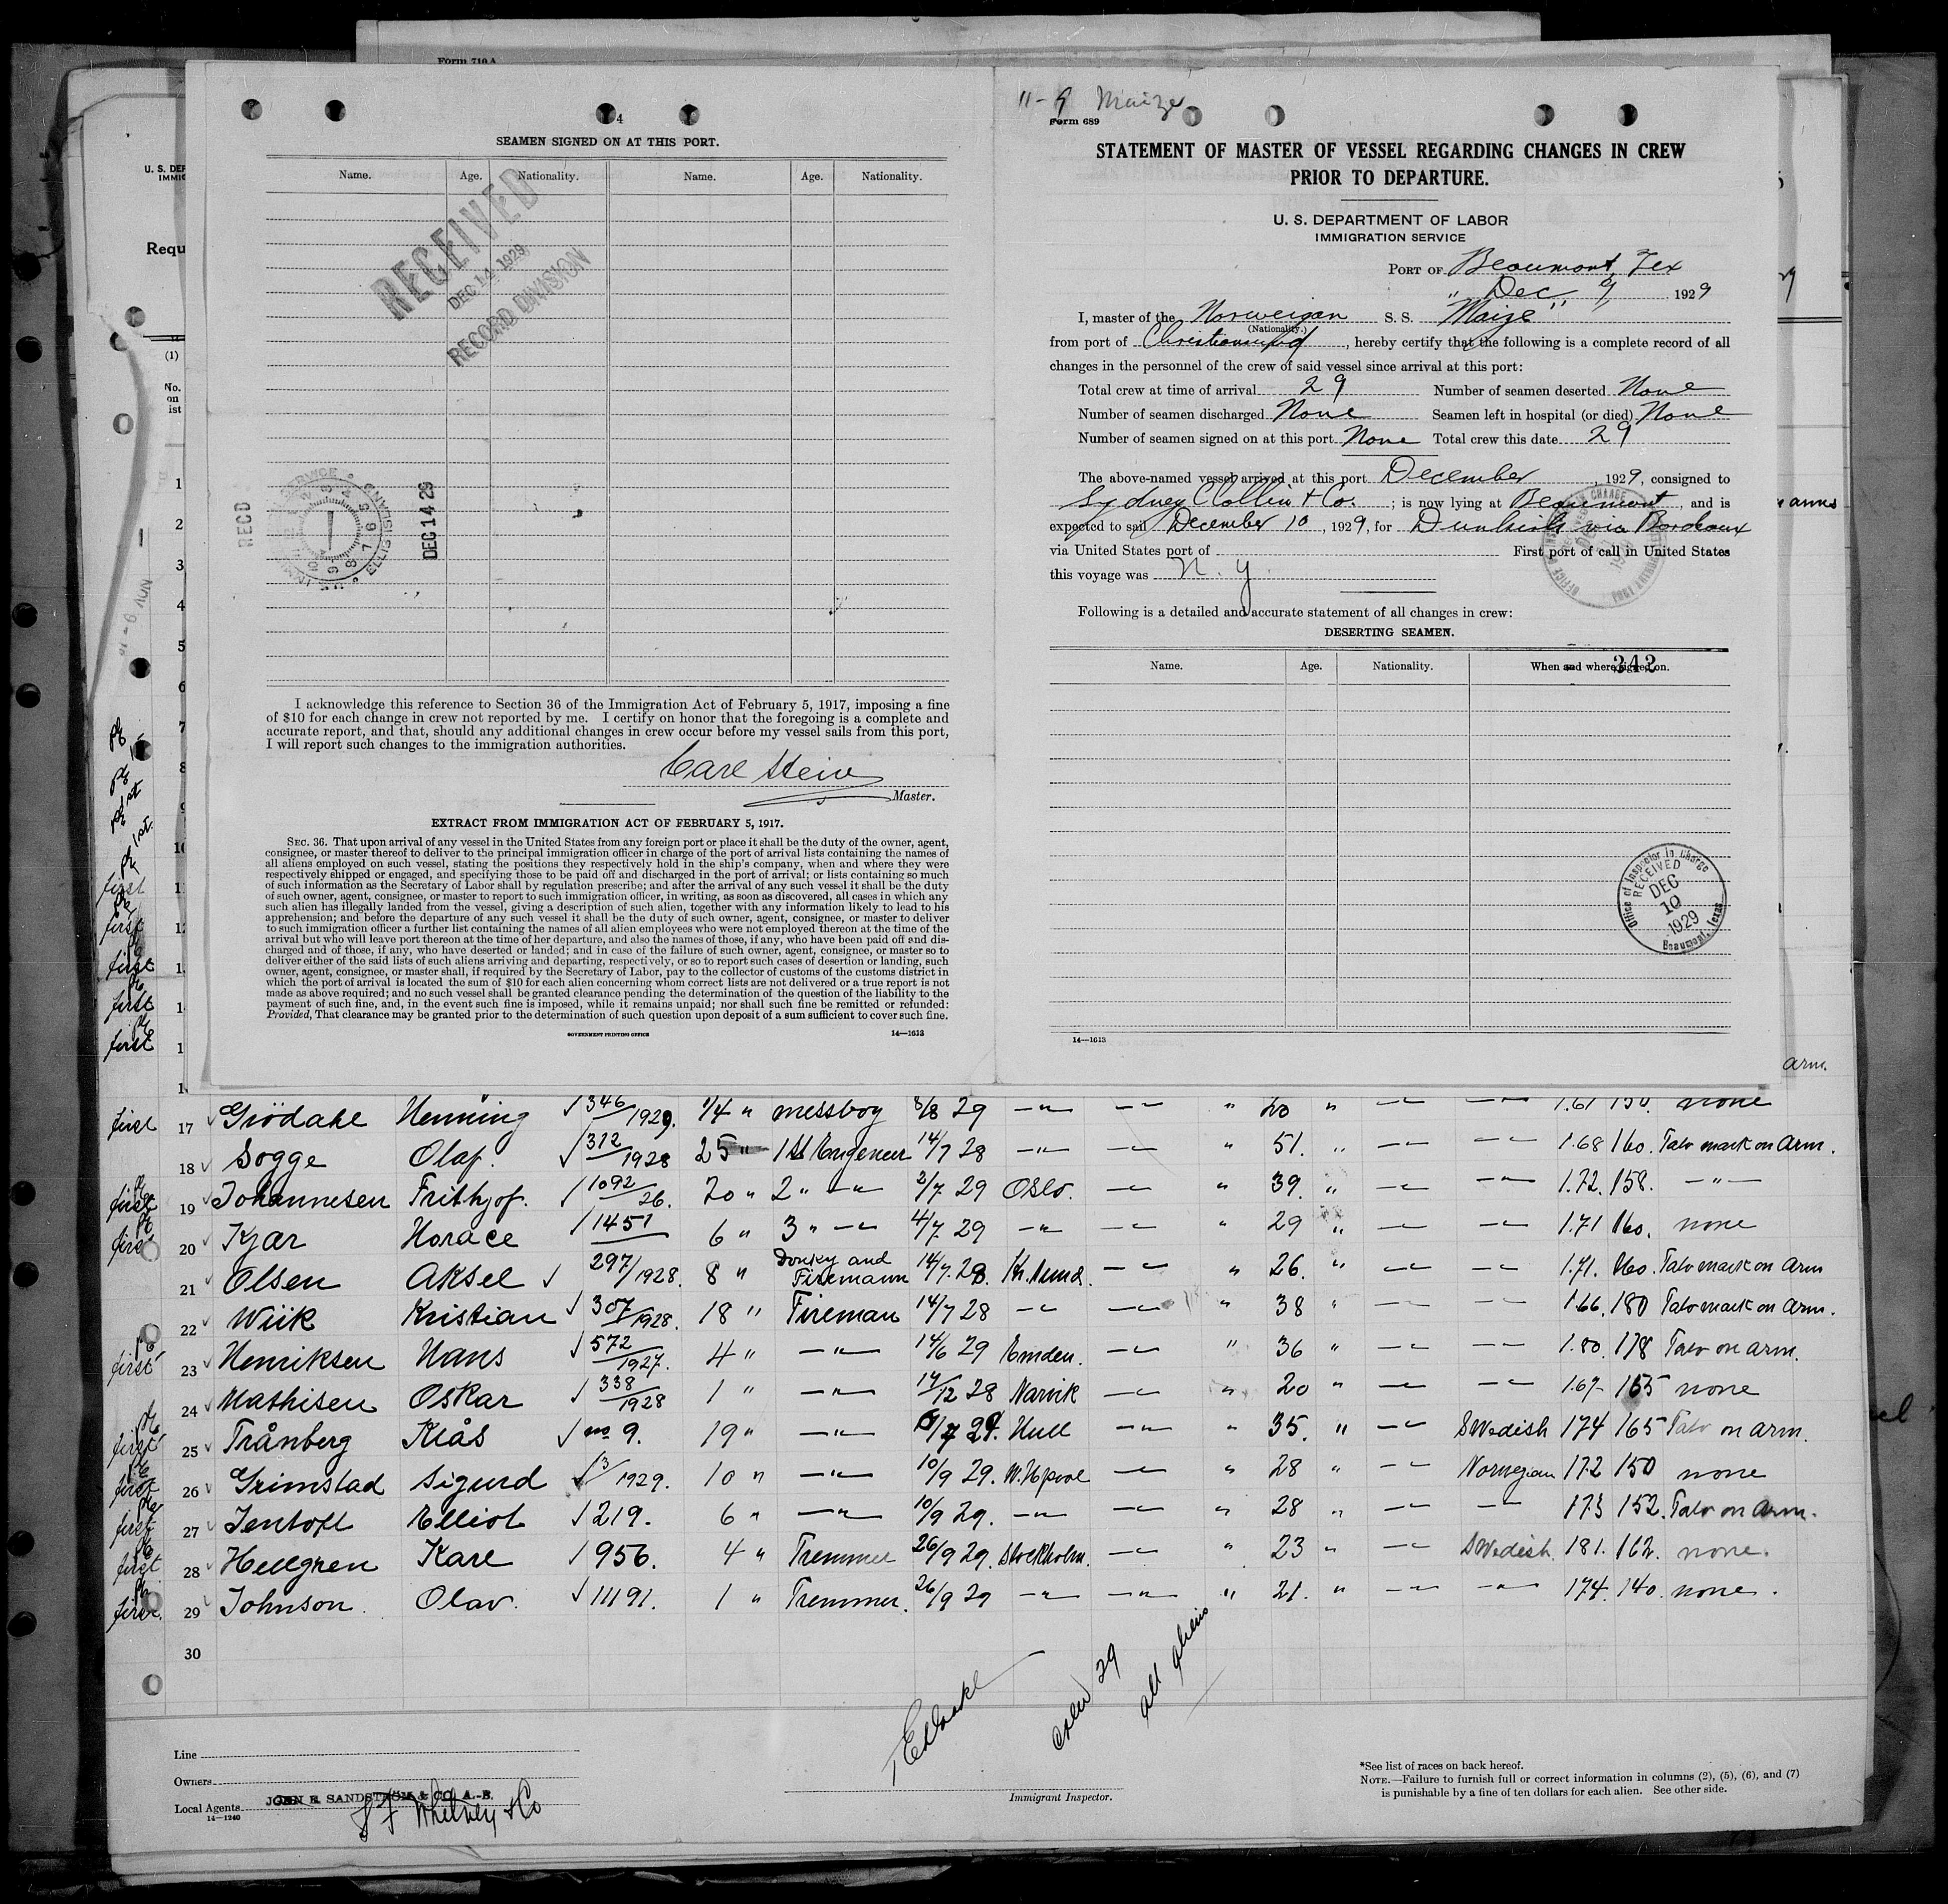 Form 710A
U. S. DEP
IMMIG
Requ
(1)
No.
on
ist
4
SEAMEN SIGNED ON AT THIS PORT.
Name. Age. Nationality. Name. Age. Nationality.
RECEIVED
DEC 14 1929
RECORD DIVISION
RECD
DEC 14 29
I acknowledge this reference to Section 36 of the Immigration Act of February 5, 1917, imposing a fine
of $10 for each change in crew not reported by me. I certify on honor that the foregoing is a complete and
accurate report, and that, should any additional changes in crew occur before my vessel sails from this port,
I will report such changes to the immigration authorities.
Carl Stein
Master.
EXTRACT FROM IMMIGRATION ACT OF FEBRUARY 5, 1917.
SEC. 36. That upon arrival of any vessel in the United States from any foreign port or place it shall be the duty of the owner, agent,
consignee, or master thereof to deliver to the principal immigration officer in charge of the port of arrival lists containing the names of
all aliens employed on such vessel, stating the positions they respectively hold in the ship's company, when and where they were
respectively shipped or engaged, and specifying those to be paid off and discharged in the port of arrival; or lists containing so much
of such information as the Secretary of Labor shall by regulation prescribe; and after the arrival of any such vessel it shall be the duty
of such owner, agent, consignee, or master to report to such immigration officer, in writing, as soon as discovered, all cases in which any
such alien has illegally landed from the vessel, giving a description of such alien, together with any information likely to lead to his
apprehension; and before the departure of any such vessel it shall be the duty of such owner, agent, consignee, or master to deliver
to such immigration officer a further list containing the names of all alien employees who were not employed thereon at the time of the
arrival but who will leave port thereon at the time of her departure, and also the names of those, if any, who have been paid off and dis-
charged and of those, if any, who have deserted or landed; and in case of the failure of such owner, agent, consignee, or master so to
deliver either of the said lists of such aliens arriving and departing, respectively, or so to report such cases of desertion or landing, such
owner, agent, consignee, or master shall, if required by the Secretary of Labor, pay to the collector of customs of the customs district in
which the port of arrival is located the sum of $10 for each alien concerning whom correct lists are not delivered or a true report is not
made as above required; and no such vessel shall be granted clearance pending the determination of the question of the liability to the
payment of such fine, and, in the event such fine is imposed, while it remains unpaid; nor shall such fine be remitted or refunded:
Provided, That clearance may be granted prior to the determination of such question upon deposit of a sum sufficient to cover such fine.
GOVERNMENT PRINTING OFFICE 14—1613
11-9 Maize
Form 689
STATEMENT OF MASTER OF VESSEL REGARDING CHANGES IN CREW
PRIOR TO DEPARTURE.
U. S. DEPARTMENT OF LABOR
IMMIGRATION SERVICE
PORT OF Beaumont, Tex
Dec 9, 1929
I, master of the Norweigan S. S. "Maize"
(Nationality.)
from port of Christiansund, hereby certify that the following is a complete record of all
changes in the personnel of the crew of said vessel since arrival at this port:
Total crew at time of arrival 29 Number of seamen deserted None
Number of seamen discharged None Seamen left in hospital (or died) None
Number of seamen signed on at this port None Total crew this date 29
The above-named vessel arrived at this port December, 1929, consigned to
Sydney Collin & Co.; is now lying at Beaumont, and is
expected to sail December 10, 1929, for Dunkirk via Bordeaux
via United States port of First port of call in United States
this voyage was N. Y.
Following is a detailed and accurate statement of all changes in crew:
DESERTING SEAMEN.
Name. Age. Nationality. When and where signed on.
342
Office of Inspector in Charge
RECEIVED
DEC
10
1929
Beaumont, Texas
14—1613
arms
arm.
first 17 Grödahl Henning 346/1929. 1/4 " messboy 8/8 29 —"— —"— " 20 " —"— —"— 1.61 150. none
18 Sogge Olaf. 312/1928 25 " 1st Engeneer 14/7 28 —"— —"— " 51. " —"— —"— 1.68 160. Tato mark on arm.
first 19 Johannesen Frithjof. 1092/26. 20 " 2 " —"— 2/7 29 Oslo. —"— " 39. " —"— —"— 1.72. 158. —"—
first 20 Kjar Horace 1451 6 " 3 " —"— 4/7 29 —"— —"— " 29 " —"— —"— 1.71 160. none
21 Olsen Aksel 297/1928. 8 " Donky and Firemann 14/7.28. Kr.sund. —"— " 26. " —"— —"— 1.71. 160. Tato mark on arm
22 Wiik Kristian 307/1928. 18 " Fireman 14/7 28 —"— —"— " 38 " —"— —"— 1.66. 180 Tato mark on arm.
first 23 Henriksen Hans 572/1927. 4 " —"— 14/6 29 Emden. —"— " 36 " —"— —"— 1.80. 178 Tato on arm.
24 Mathisen Oskar 338/1928 1 " —"— 14/12 28 Narvik —"— " 20 " —"— —"— 1.67- 165 none
first 25 Trånberg Klås no 9. 19 " —"— 6/7 29. Hull —"— " 35. " —"— Swedish 174 165 Tato on arm.
first 26 Grimstad Sigurd 3/1929. 10 " —"— 10/9 29. W.H.pool —"— " 28 " —"— Norwegian 172 150 none
first 27 Jentoft Elliot 219. 6 " —"— 10/9 29. —"— —"— " 28 " —"— —"— 173 152. Tato on arm.
first 28 Hellgren Karl 956. 4 " Tremmer 26/9 29. Stockholm. —"— " 23 " —"— Swedish. 181. 162. none.
first 29 Johnson Olav. 11191. 1 " Tremmer. 26/9 29 —"— —"— " 21. " —"— —"— 174. 140. none.
30
crew 29
all aliens
Line
Owners
Local Agents JOHN E. SANDSTRÖM & CO. A.-B.
14—1240
J F Whitney & Co
Immigrant Inspector.
*See list of races on back hereof.
NOTE.—Failure to furnish full or correct information in columns (2), (5), (6), and (7)
is punishable by a fine of ten dollars for each alien. See other side.